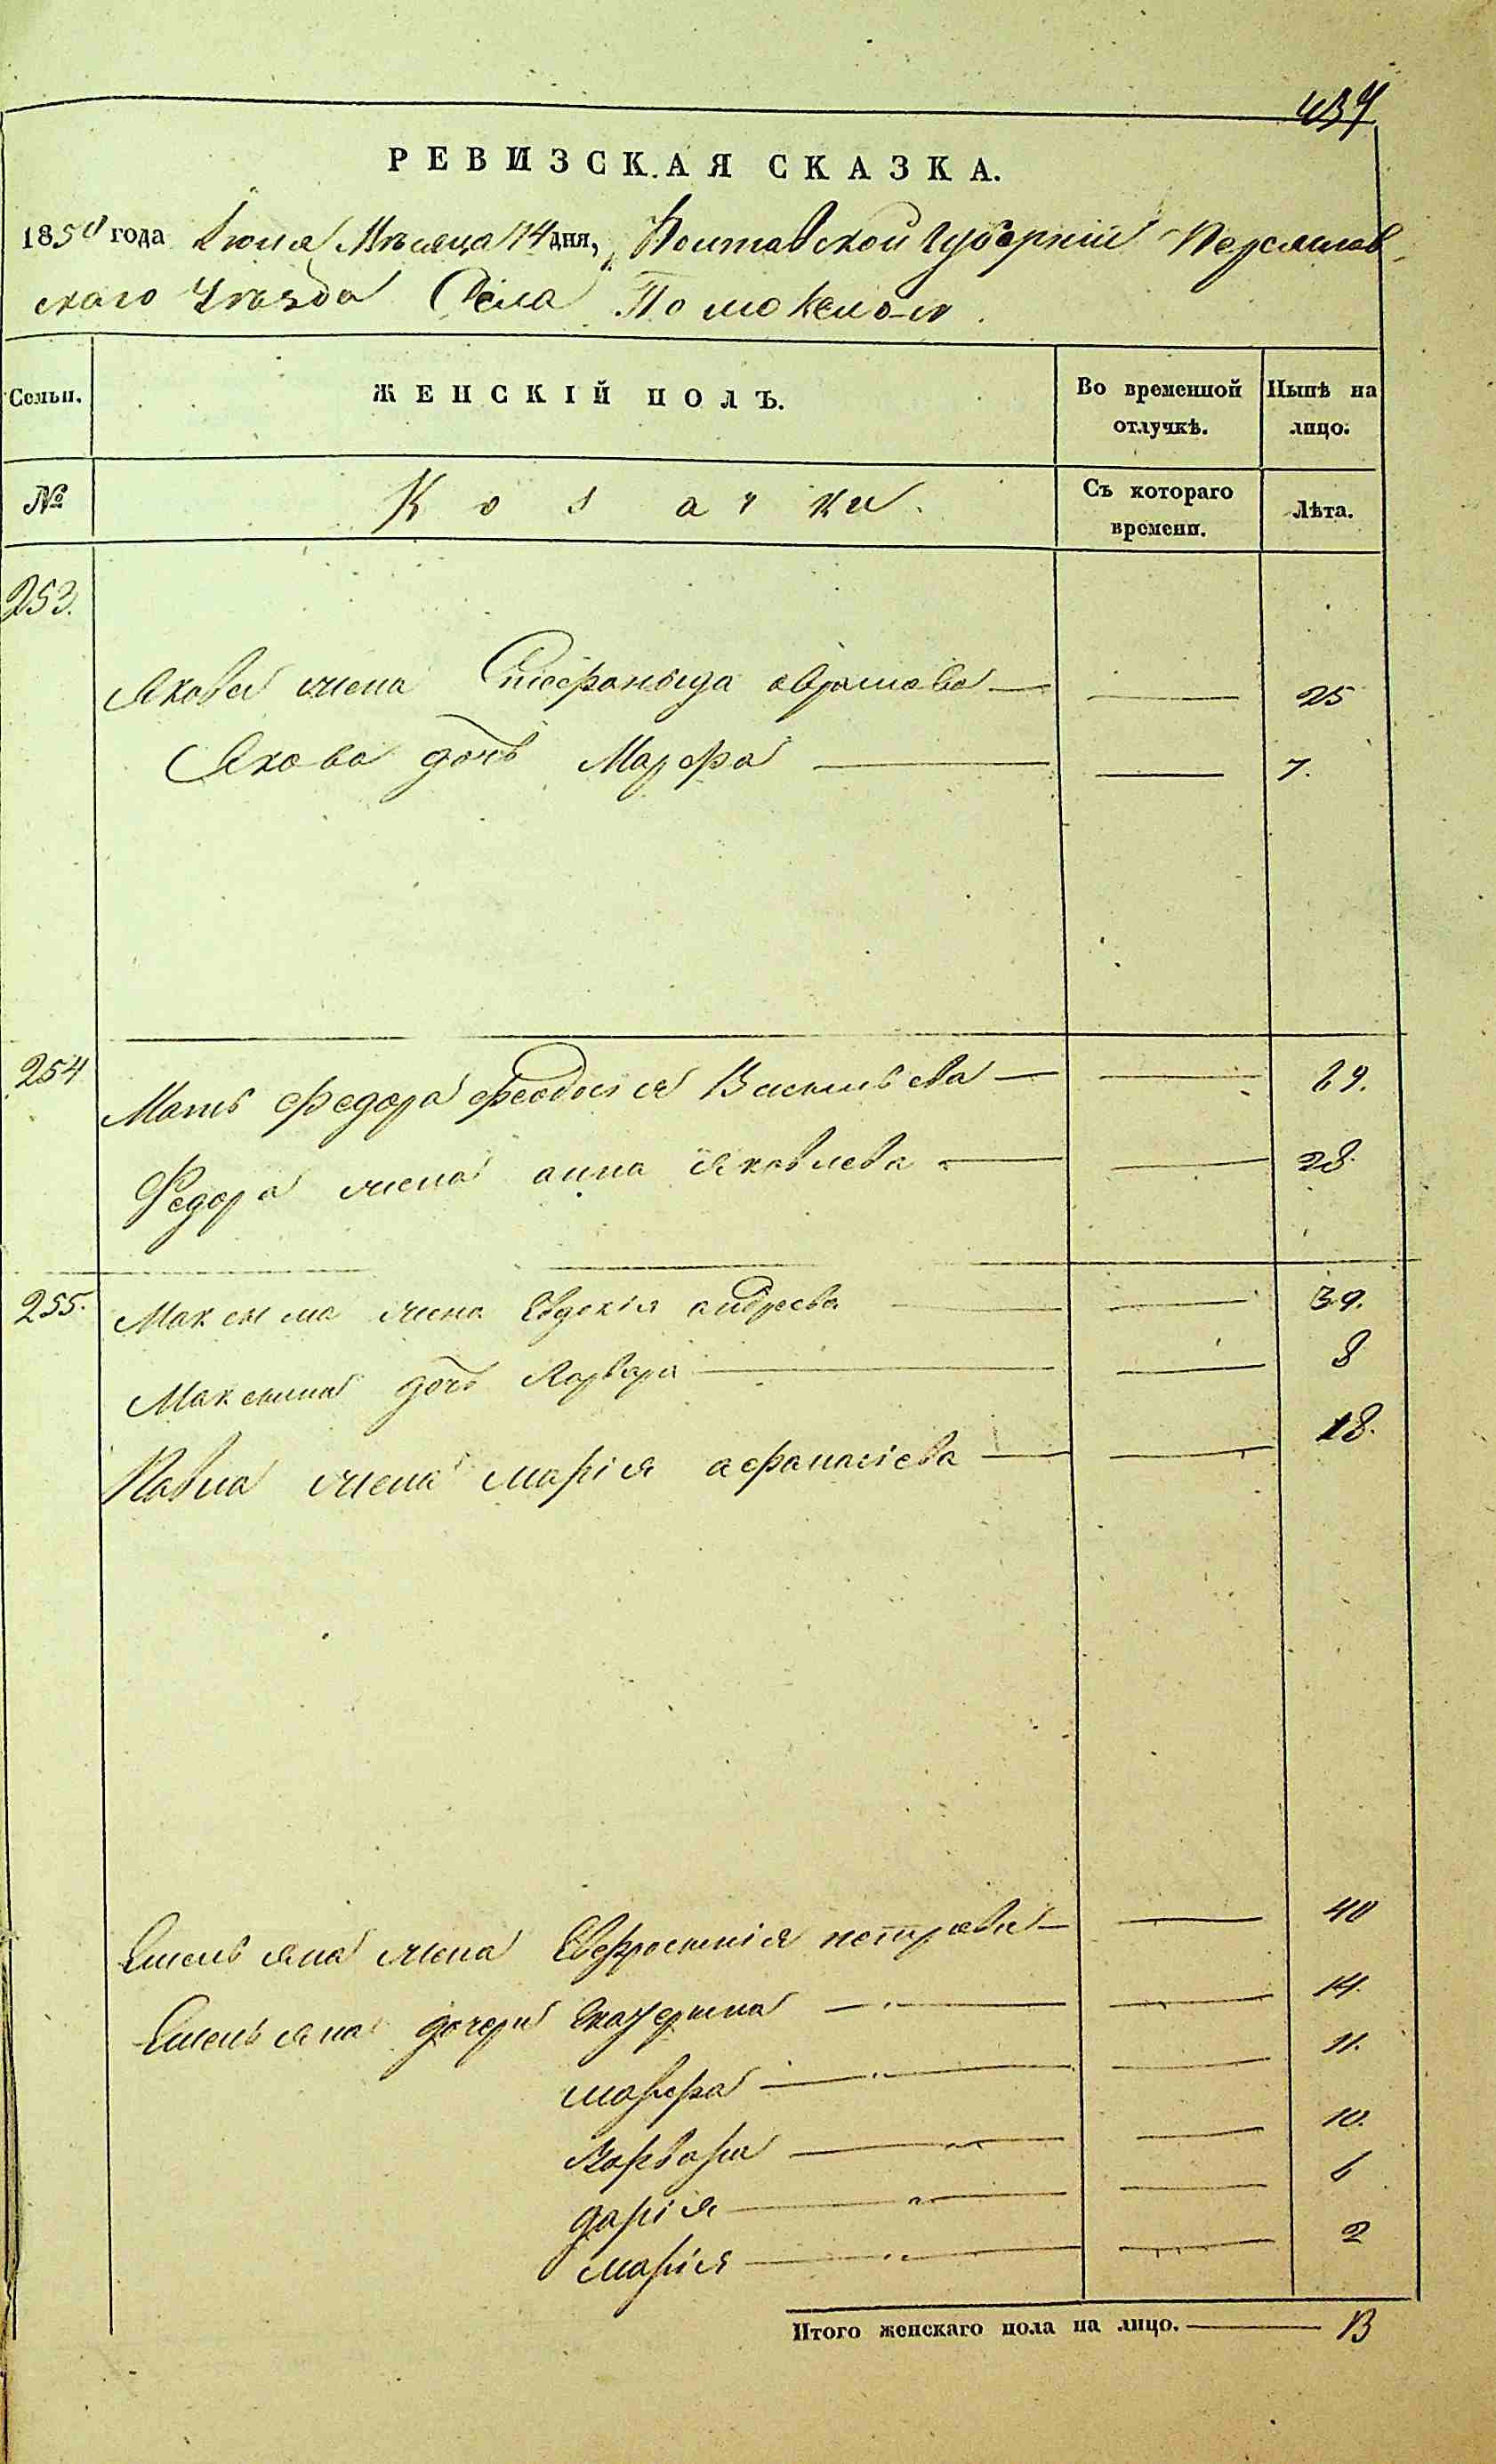 437
РЕВИЗСКАЯ СКАЗКА.
1850 года Іюня Мѣсяца 14 дня, Полтавской Губерніи Переяслав-
скаго Уѣзда Села
Семьи. ЖЕНСКІЙ ПОЛЪ. Во временной отлучкѣ. Нынѣ на лицо.
№ Козачки. Съ котораго времени. Лѣта.
253.
Якова жена Стефанида аврамова — — 25
Якова дочь Марфа — — 7.
254
Мать Федора Феодосія Васильева — — 69.
Федора жена анна Яковлева — — 28.
255. Максима жена Евдокія андреева — — 39.
Максима дочь Варвара — — 8
Павла жена марія афанасіева — — 18.
Емельяна жена Евфросинія петрова — — 40
Емельяна дочери Екатерина — — 14.
марфа — — 11.
Варвара — — 10.
дарія — — 6
марія — — 2
Итого женскаго пола на лицо. — 13